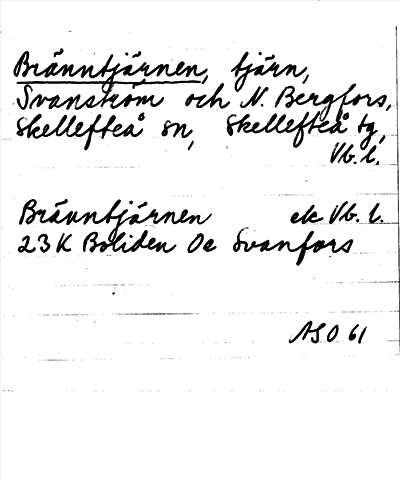 Bränntjärnen, tjärn,
Svanström och N. Bergfors,
Skellefteå sn, Skellefteå tg,
Vb. l.
Bränntjärnen ek Vb. l.
23K Boliden Oc Svanfors
ASO 61